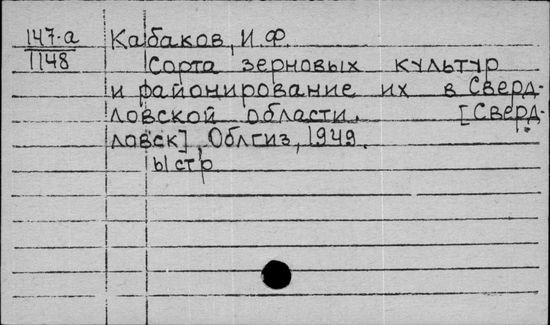 147-а
1148
Кабаков, И.Ф.
Сорта зерновых культур
и районирование их в Сверд-
ловской области. [Сверд-
ловск], Облгиз, 1949.
ы стр